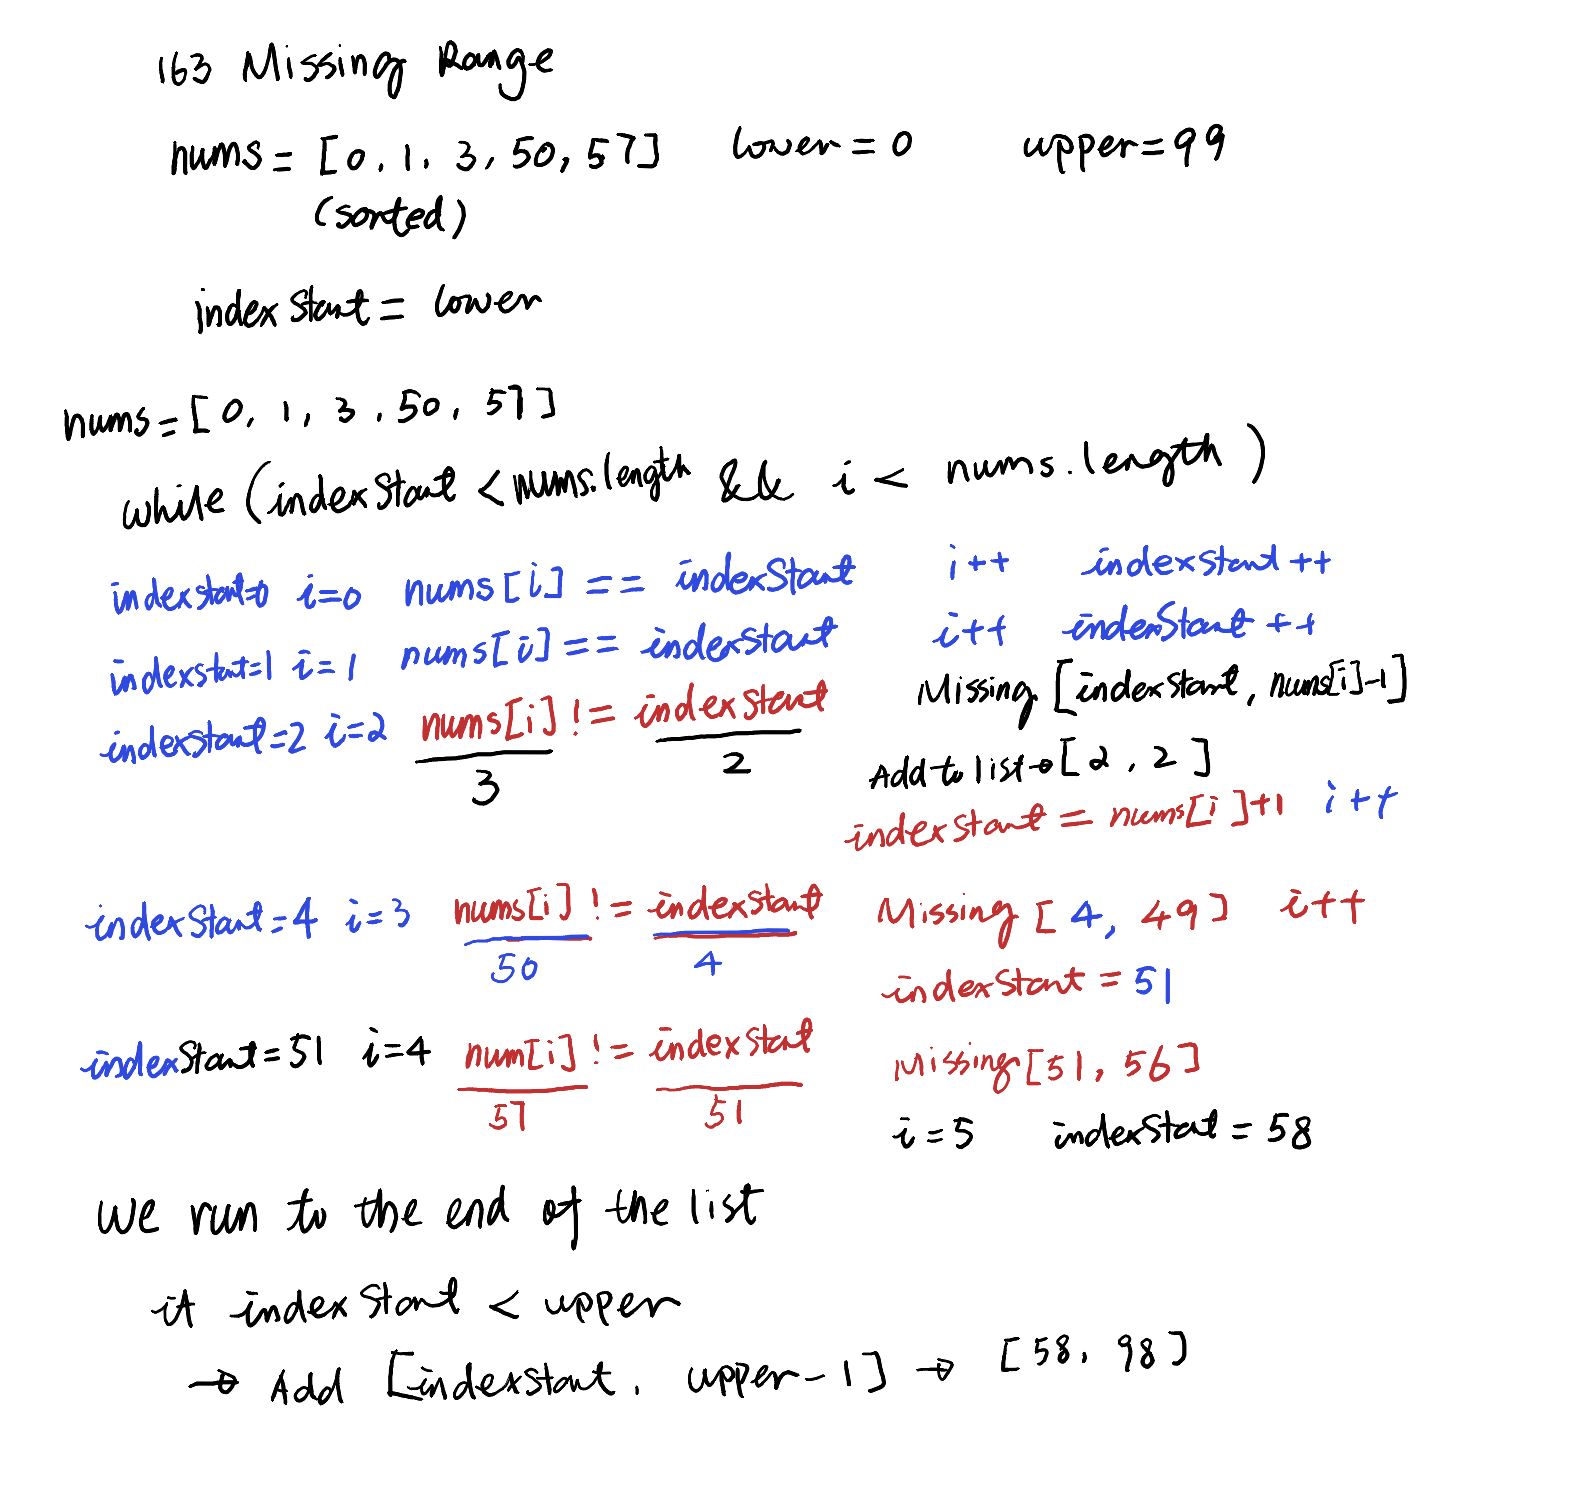 163 Missing Range
nums = [0, 1, 3, 50, 57] lower = 0 upper = 99
(sorted)
indexStart = lower
nums = [0, 1, 3, 50, 57]
while (indexStart < nums.length && i < nums.length)
indexstart=0 i=0 nums[i] == indexStart i++ indexstart++
indexstart=1 i=1 nums[i] == indexstart i++ indexStart++
Missing. [indexStart, nums[i]-1]
indexstart=2 i=2 nums[i] != indexstart
3 2
Add to list → [2, 2]
indexstart = nums[i]+1 i++
indexStart=4 i=3 nums[i] != indexstart Missing [4, 49] i++
50 4
indexStart = 51
indexStart=51 i=4 num[i] != indexstart Missing [51, 56]
57 51
i=5 indexStart = 58
We run to the end of the list
if indexStart < upper
→ Add [indexStart, upper-1] → [58, 98]